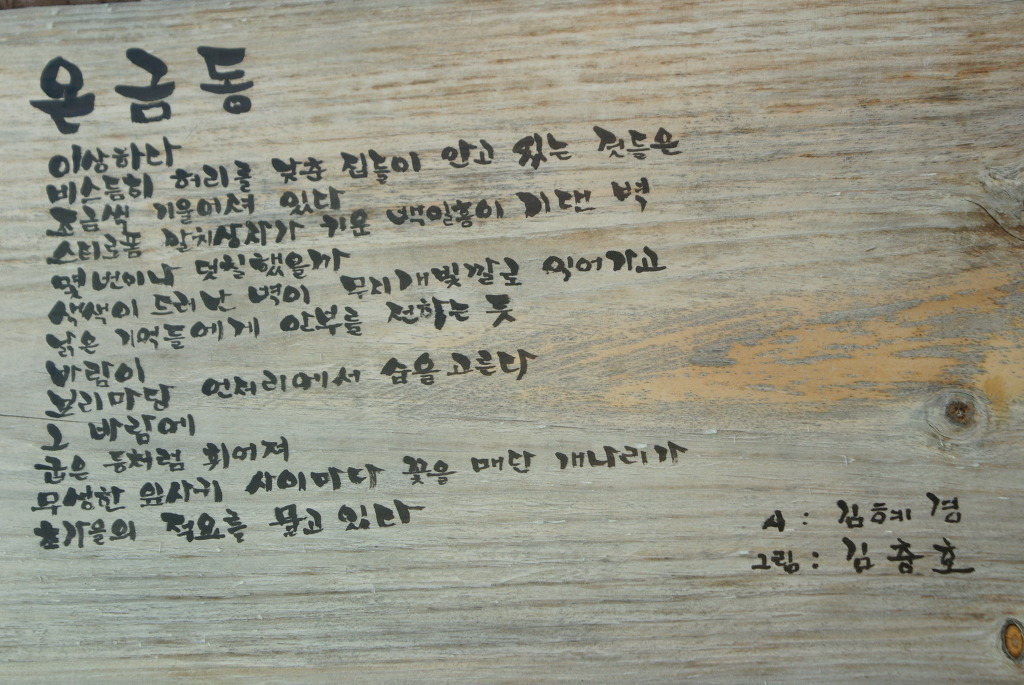 온금동
이상하다
비스듬히 허리를 낮춘 집들이 안고 있는 것들은
조금씩 기울어져 있다
스티로폼 갈치상자가 키운 백일홍이 기댄 벽
몇 번이나 덧칠했을까
색색이 드러난 벽이 무지개빛깔로 익어가고
낡은 기억들에게 안부를 전하는 듯
바람이
보리마당 언저리에서 숨을 고른다
그 바람에
굽은 등처럼 휘어져
무성한 잎사귀 사이마다 꽃을 매단 개나리가
초가을의 적요를 묻고 있다
시 : 김혜경
그림 : 김충호